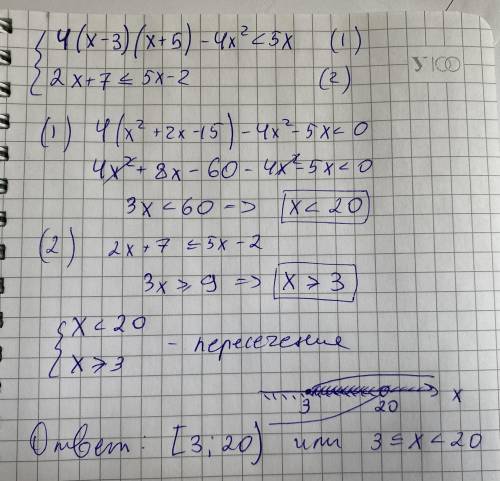 { 4(x-3)(x+5) - 4x² < 5x (1)
2x+7 ≤ 5x-2 (2)
(1) 4(x²+2x-15) - 4x² - 5x < 0
4x² + 8x - 60 - 4x² - 5x < 0
3x < 60 => x < 20
(2) 2x+7 ≤ 5x-2
3x ≥ 9 => x ≥ 3
{ x < 20
x ≥ 3 - пересечение
3 20 x
Ответ: [3; 20) или 3 ≤ x < 20